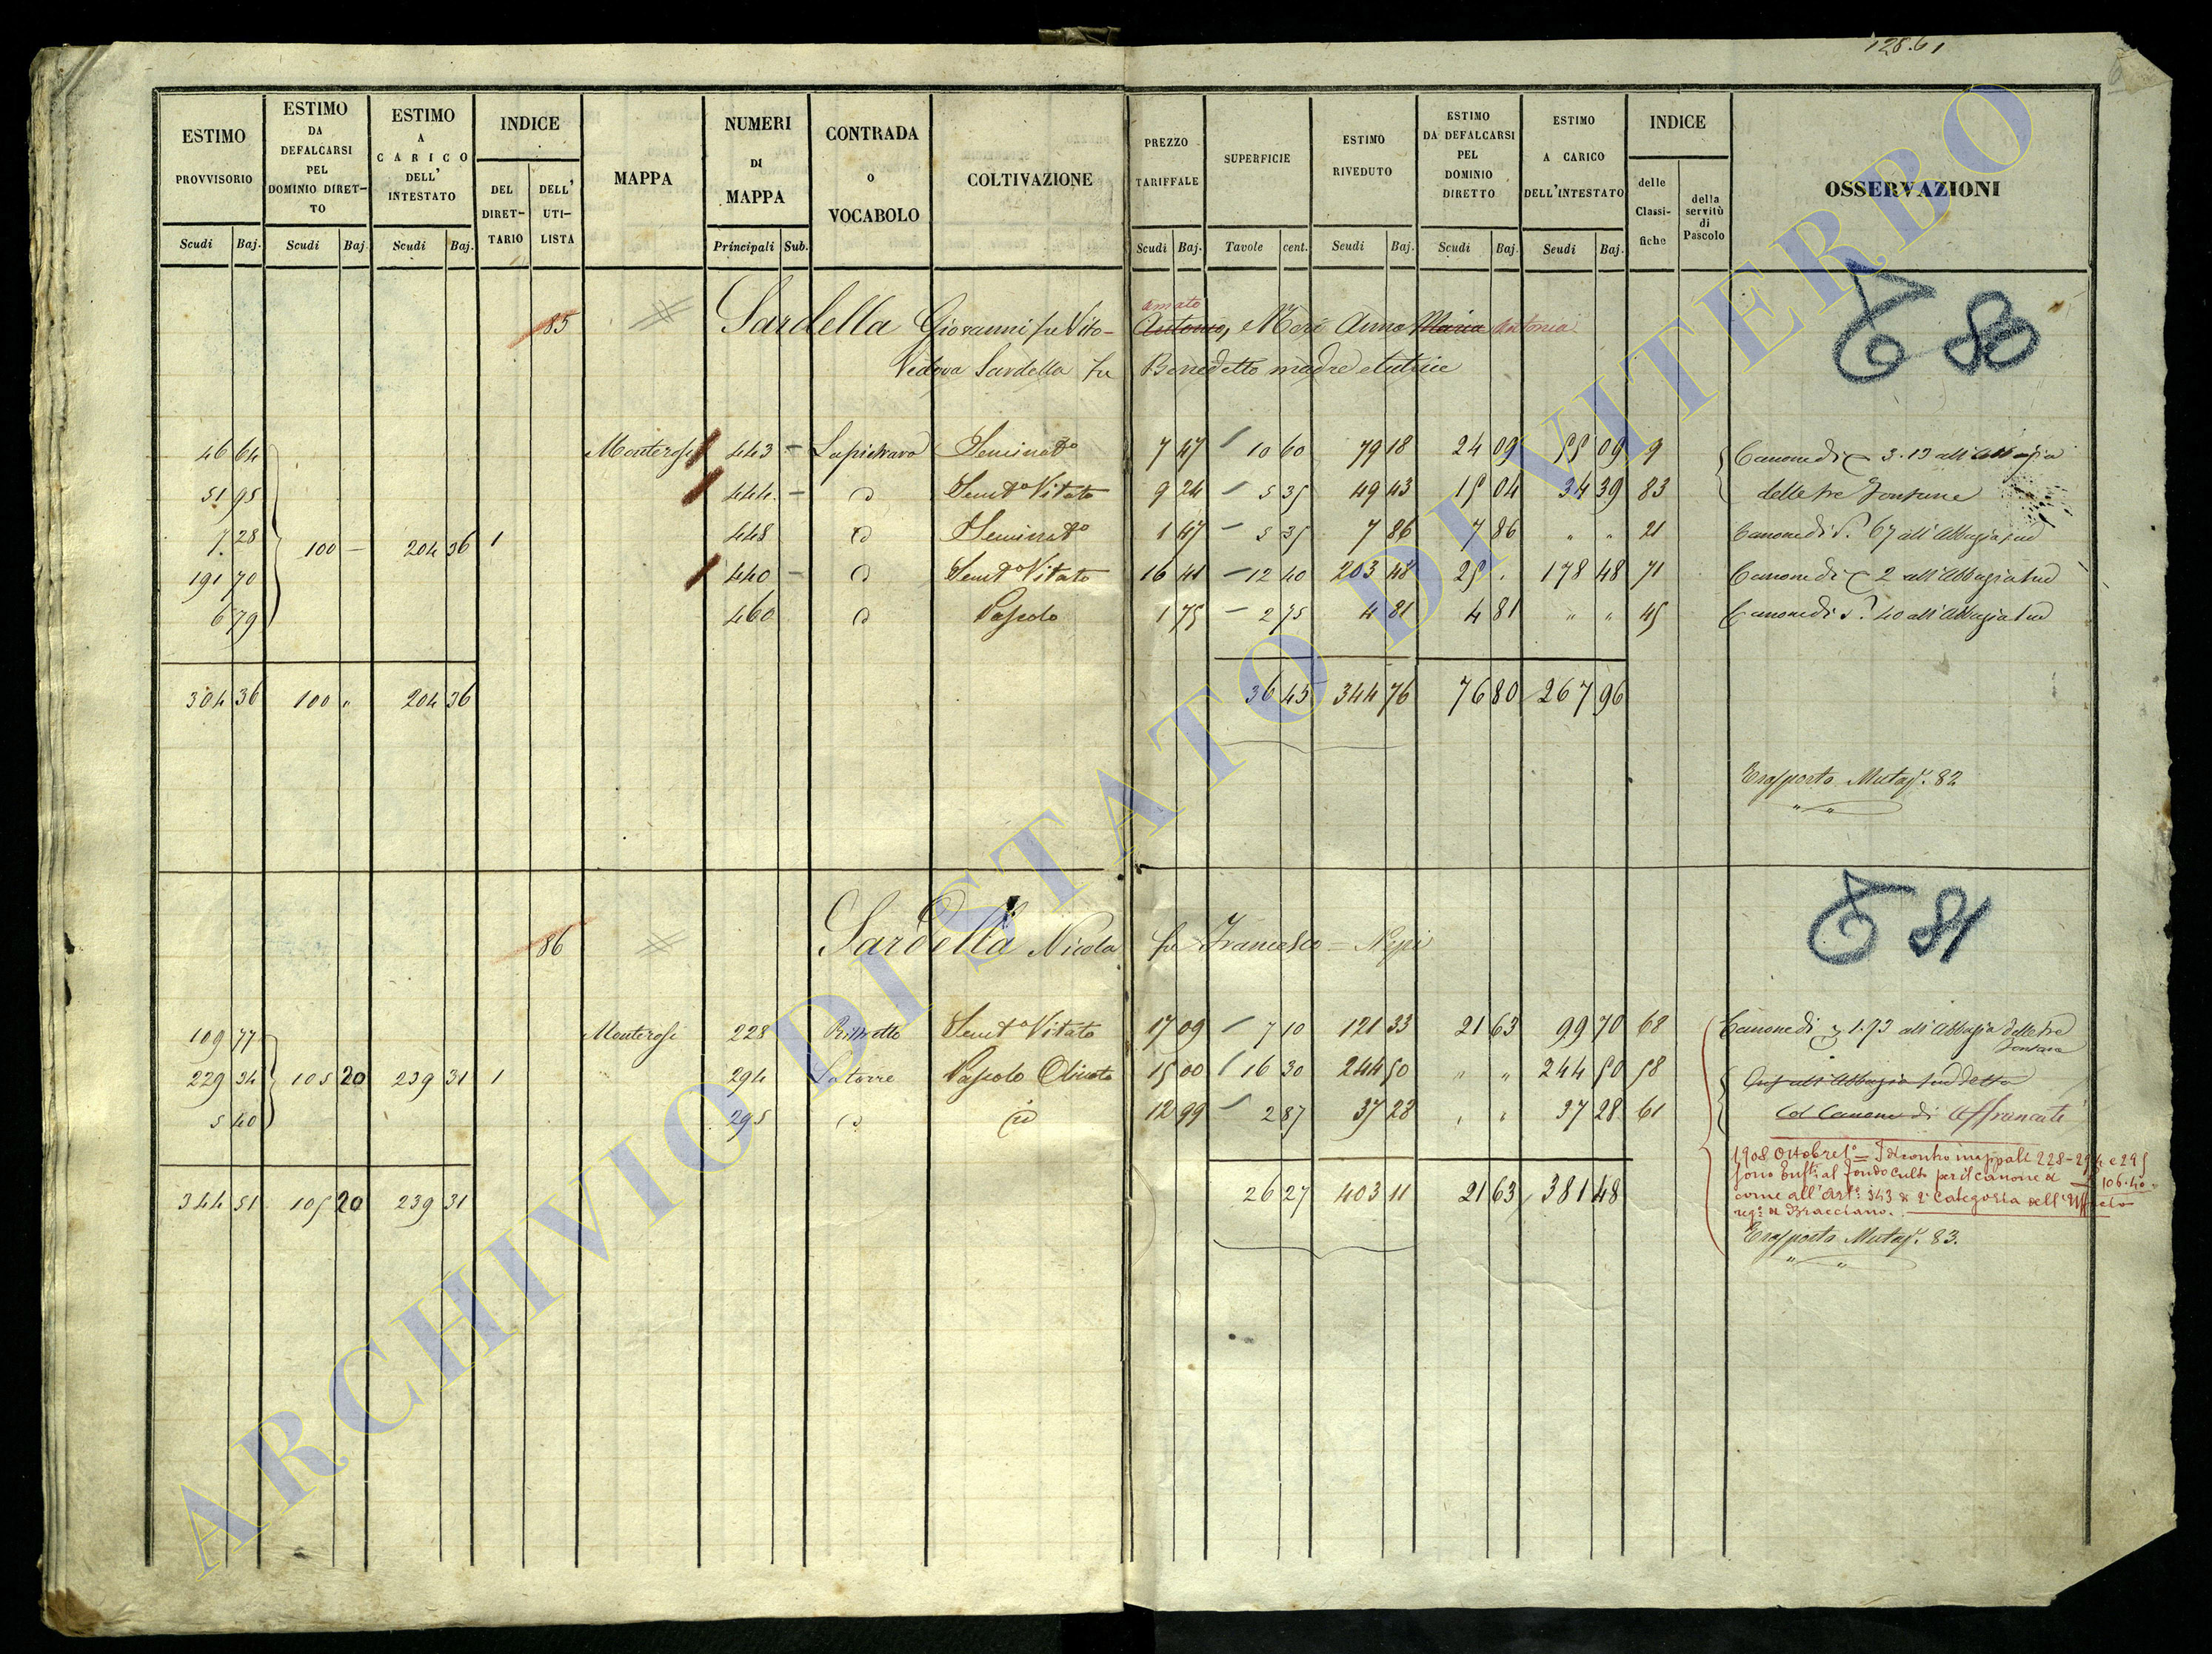 128.61
ESTIMO PROVVISORIO
ESTIMO DA DEFALCARSI PEL DOMINIO DIRET- TO
ESTIMO A CARICO DELL' INTESTATO
INDICE
DEL DIRET- TARIO
DELL' UTI- LISTA
MAPPA
NUMERI DI MAPPA
CONTRADA o VOCABOLO
COLTIVAZIONE
PREZZO TARIFFALE
SUPERFICIE
ESTIMO RIVEDUTO
ESTIMO DA DEFALCARSI PEL DOMINIO DIRETTO
ESTIMO A CARICO DELL'INTESTATO
INDICE
delle Classi- fiche
della servitù di Pascolo
OSSERVAZIONI
Scudi Baj. Scudi Baj. Scudi Baj. Principali Sub. Scudi Baj. Tavole cent. Scudi Baj. Scudi Baj. Scudi Baj.
85 Sardella Giovanni fu Vito- Antonio, e Neri Anna Maria Antonia
amato
Vedova Sardella fu Benedetto madre e tutrice
80
46 64 Monterosi 443 - Seminat.o 7 47 10 60 79 18 24 09 55 09 9 Canone di 3.13 all'Abbazia
51 95 444 - Semt.o Vitato 9 24 5 35 49 43 15 04 34 39 83 delle tre Fontane
7 28 100 — 204 36 1 448 Seminat.o 1 47 5 35 7 86 7 86 " " 21 Canone di 67 all'Abbazia sud
191 70 440 - Semt.o Vitato 16 41 12 40 203 48 25 . 178 48 71 Canone di 2 all'Abbazia sud
6 79 460 Pascolo 1 75 2 75 4 81 4 81 " " 45 Canone di 40 all'Abbazia sud
304 36 100 " 204 36 36 45 344 76 76 80 267 96
Trasporto Mutaz. 82
86 Sardella Nicola fu Francesco = Nepi
81
109 77 Monterosi 228 Semt.o Vitato 17 09 7 10 121 33 21 63 99 70 68 Canone di 1.73 all'Abbazia delle tre
Fontane
229 34 105 20 239 31 1 294 La torre Pascolo Olivato 15 00 16 30 244 50 " " 244 50 58 all'Abbazia suddetta
5 40 295 id 12 99 2 87 37 28 " " 37 28 61 Col Canone di Affrancati
1908 Ottobre 1° = Il contro mappali 228-294 e 295
sono al Fondo Culto per il canone di 106.40
come all'Art. 343 2a Categoria dell'Ufficio
reg.o di Bracciano.
344 51 105 20 239 31 26 27 403 11 21 63 381 48
Trasporto Mutaz. 83.
ARCHIVIO DI STATO DI VITERBO